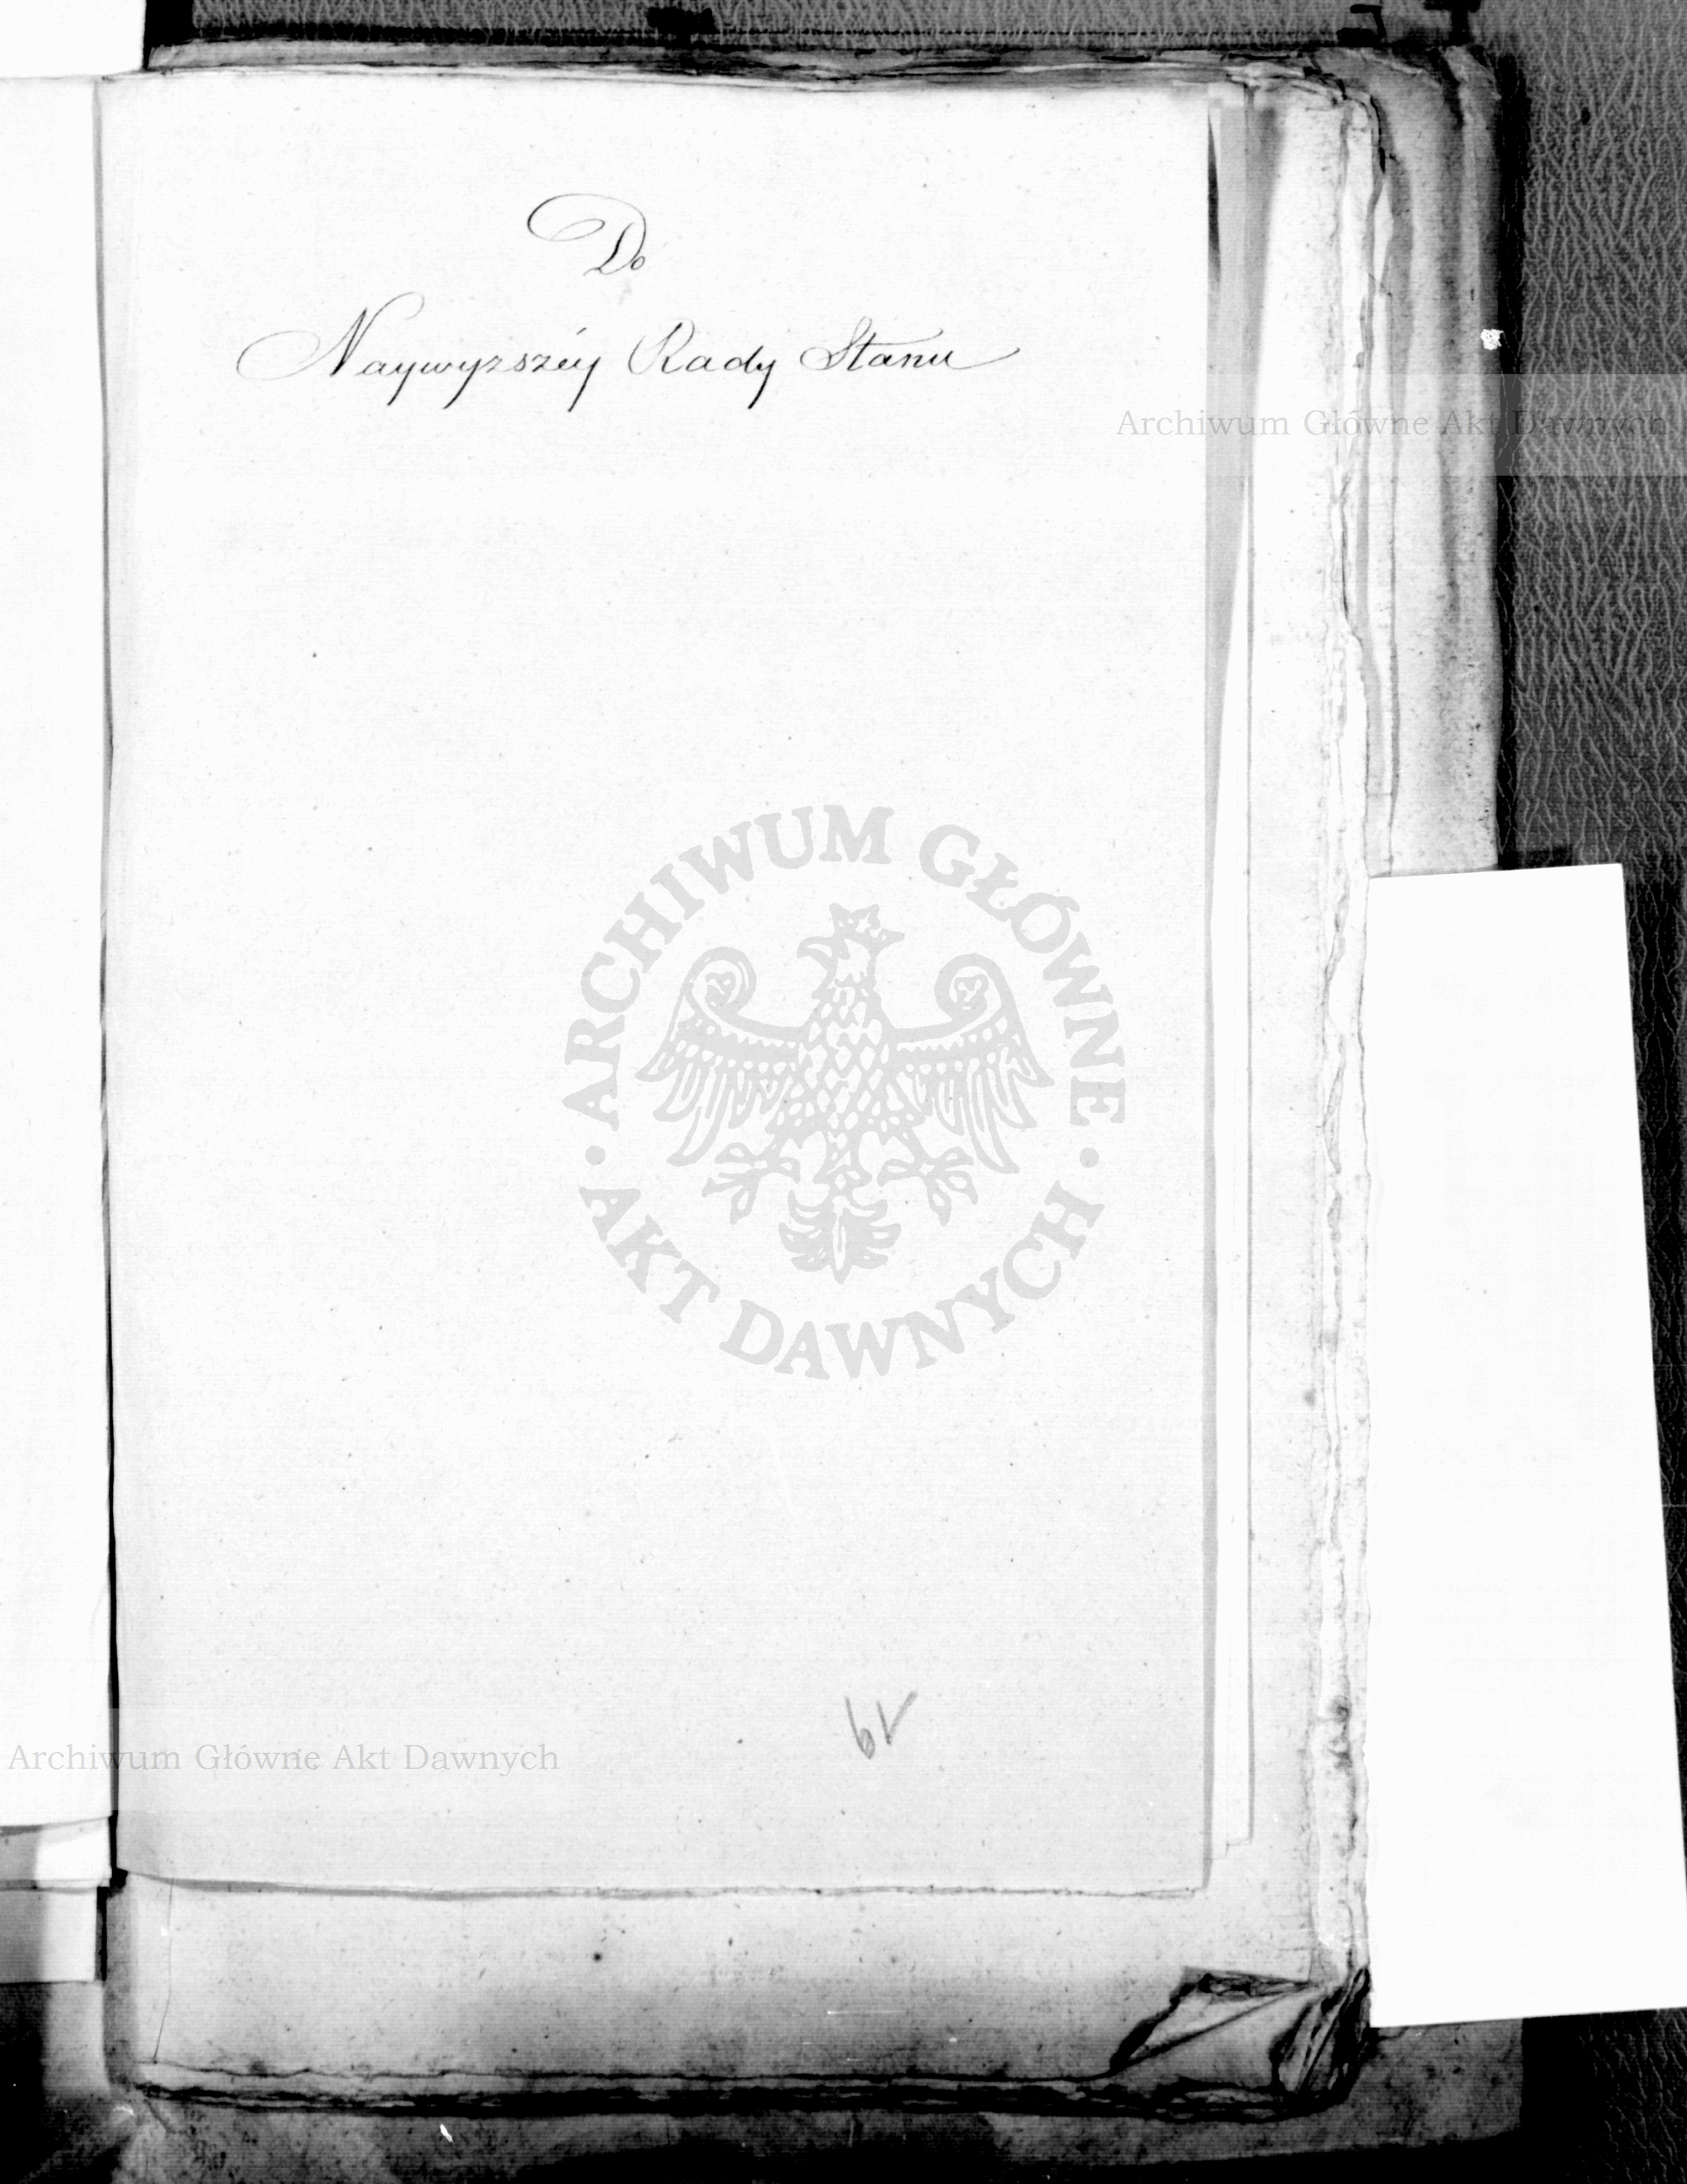 Do
Naywyzszéy Rady Stanu
Archiwum Główne Akt Dawnych
ARCHIWUM GŁÓWNE
AKT DAWNYCH
Archiwum Główne Akt Dawnych